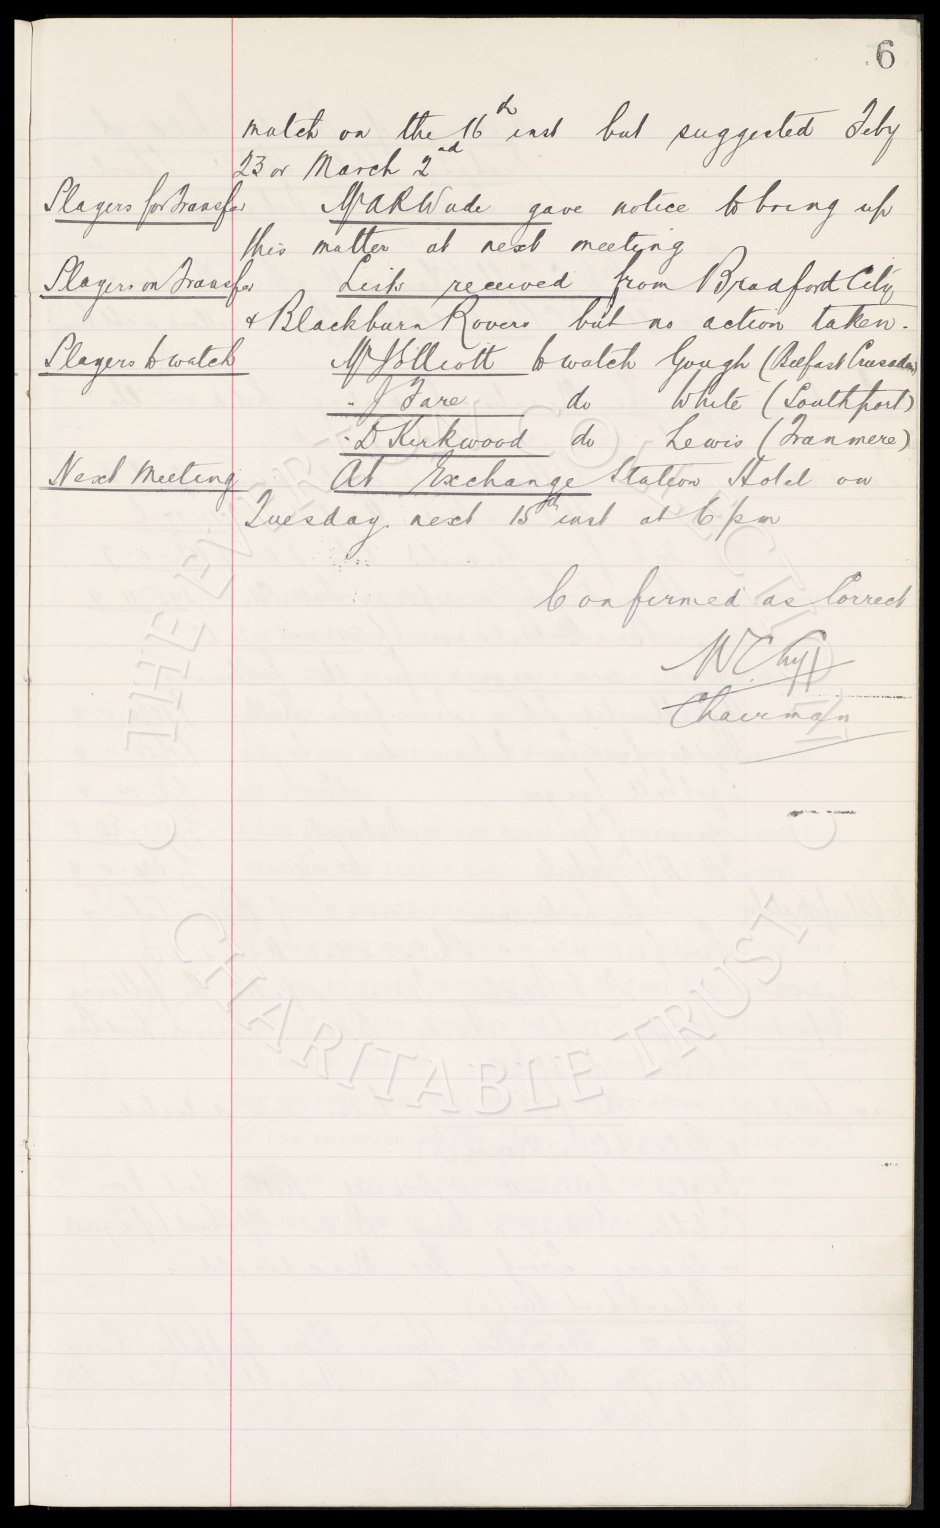 6
match on the 16th inst but suggested Feby
23 or March 2nd
Players for Transfer Mr A R Wade gave notice to bring up
this matter at next meeting
Players on Transfer Lists received from Bradford City
& Blackburn Rovers but no action taken.
Players to watch Mr Elliott to watch Gough (Belfast Crusaders)
" J Fare do White (Southport)
" D Kirkwood do Lewis (Tranmere)
Next Meeting At Exchange Station Hotel on
Tuesday next 15th inst at 6 pm
Confirmed as Correct
Chairman
THE EVERTON COLLECTION
CHARITABLE TRUST